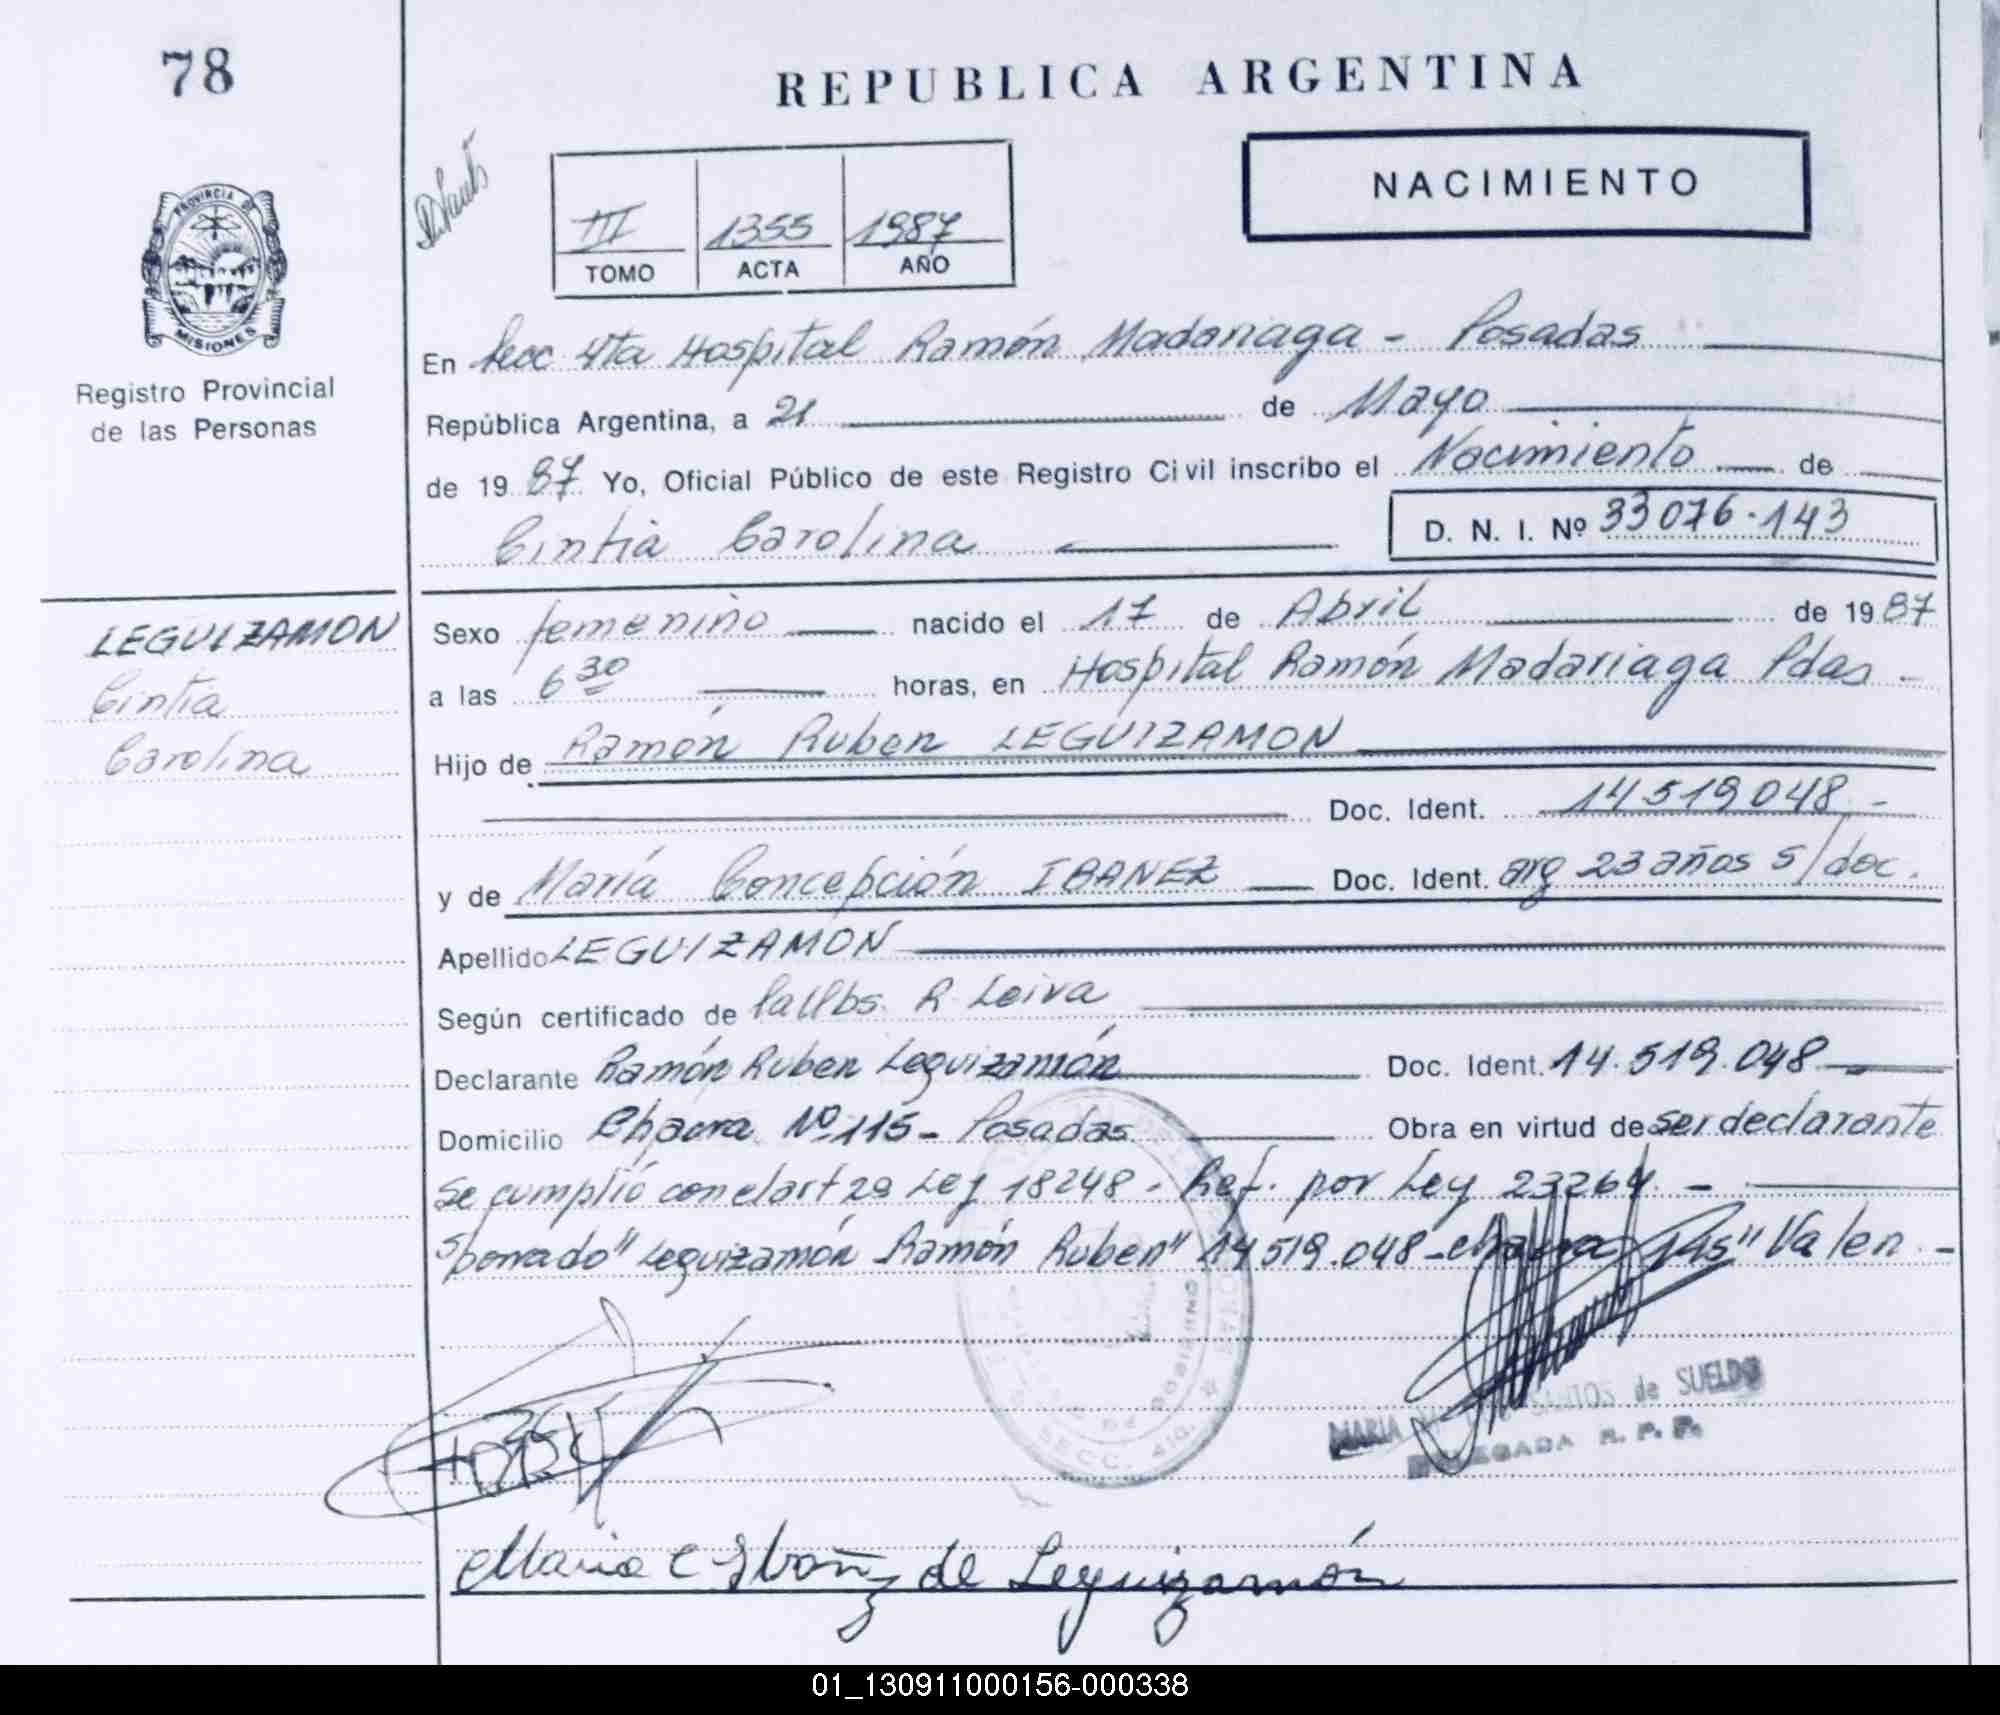 78
REPUBLICA ARGENTINA
NACIMIENTO
III 1355 1987
TOMO ACTA AÑO
PROVINCIA DE
MISIONES
Registro Provincial
de las Personas
En Secc 4ta Hospital Ramón Madariaga - Posadas
República Argentina, a 21 de Mayo
de 1987 Yo, Oficial Público de este Registro Civil inscribo el Nacimiento de
Cintia Carolina D. N. I. Nº 33076.143
LEGUIZAMON
Cintia
Carolina
Sexo femenino nacido el 17 de Abril de 1987
a las 6 30 horas, en Hospital Ramón Madariaga Pdas -
Hijo de Ramón Ruben LEGUIZAMON
Doc. Ident. 14519048 -
y de María Concepción IBAÑEZ Doc. Ident. arg 23 años s/doc.
Apellido LEGUIZAMON
Según certificado de R Leiva
Declarante Ramón Ruben Leguizamón Doc. Ident. 14.519.048
Domicilio Chacra Nº 115 - Posadas Obra en virtud de ser declarante
Se cumplió con el art 29 Ley 18248 - Ref. por Ley 23264 -
"Leguizamón Ramón Ruben" 14519.048 - chacra 115" Valen -
SECC. 4ta.
MARIA SANTOS de SUELDO
DELEGADA R. P. P.
Maria C Ibañez de Leguizamón
01_130911000156-000338